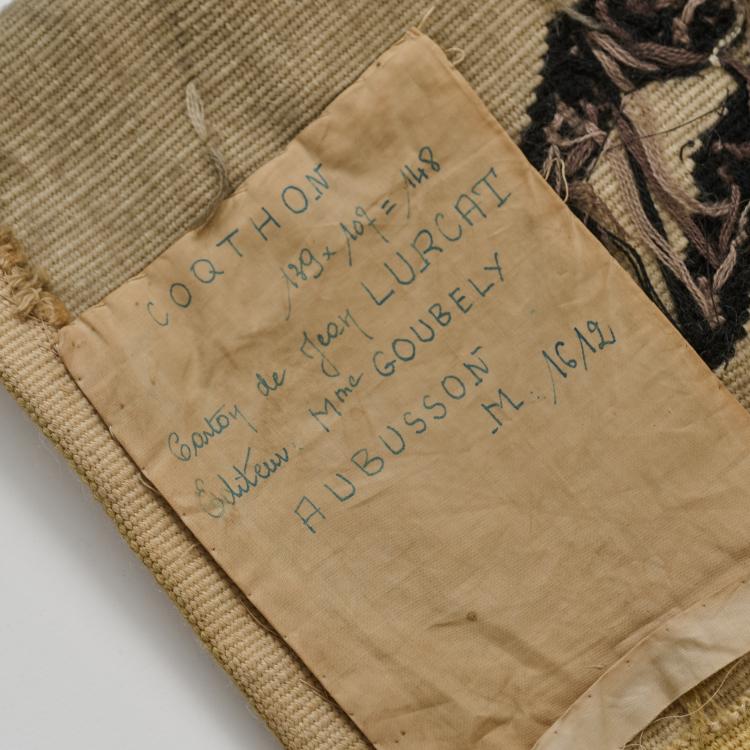 COQTHON
139 x 107 = 148
Carton de Jean LURCAT
Editeur: Mme GOUBELY
AUBUSSON
M. 1612